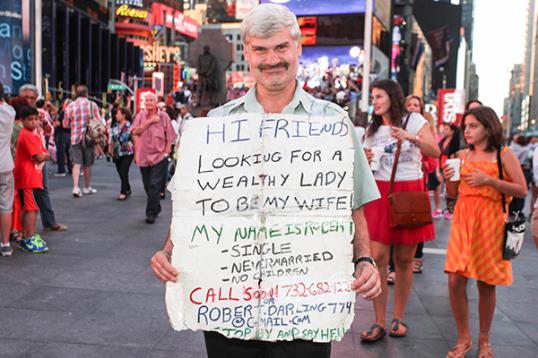 HI FRIEND
LOOKING FOR A
WEALTHY LADY
TO BE MY WIFE!
MY NAME IS ROBERT
-SINGLE
-NEVER MARRIED
-NO CHILDREN
CALL SOON! 732-682-122
OR
ROBERT.DARLING774
@G-MAIL-COM
-TOP BY AND SAY HELL
REESE
HERSHEY'S